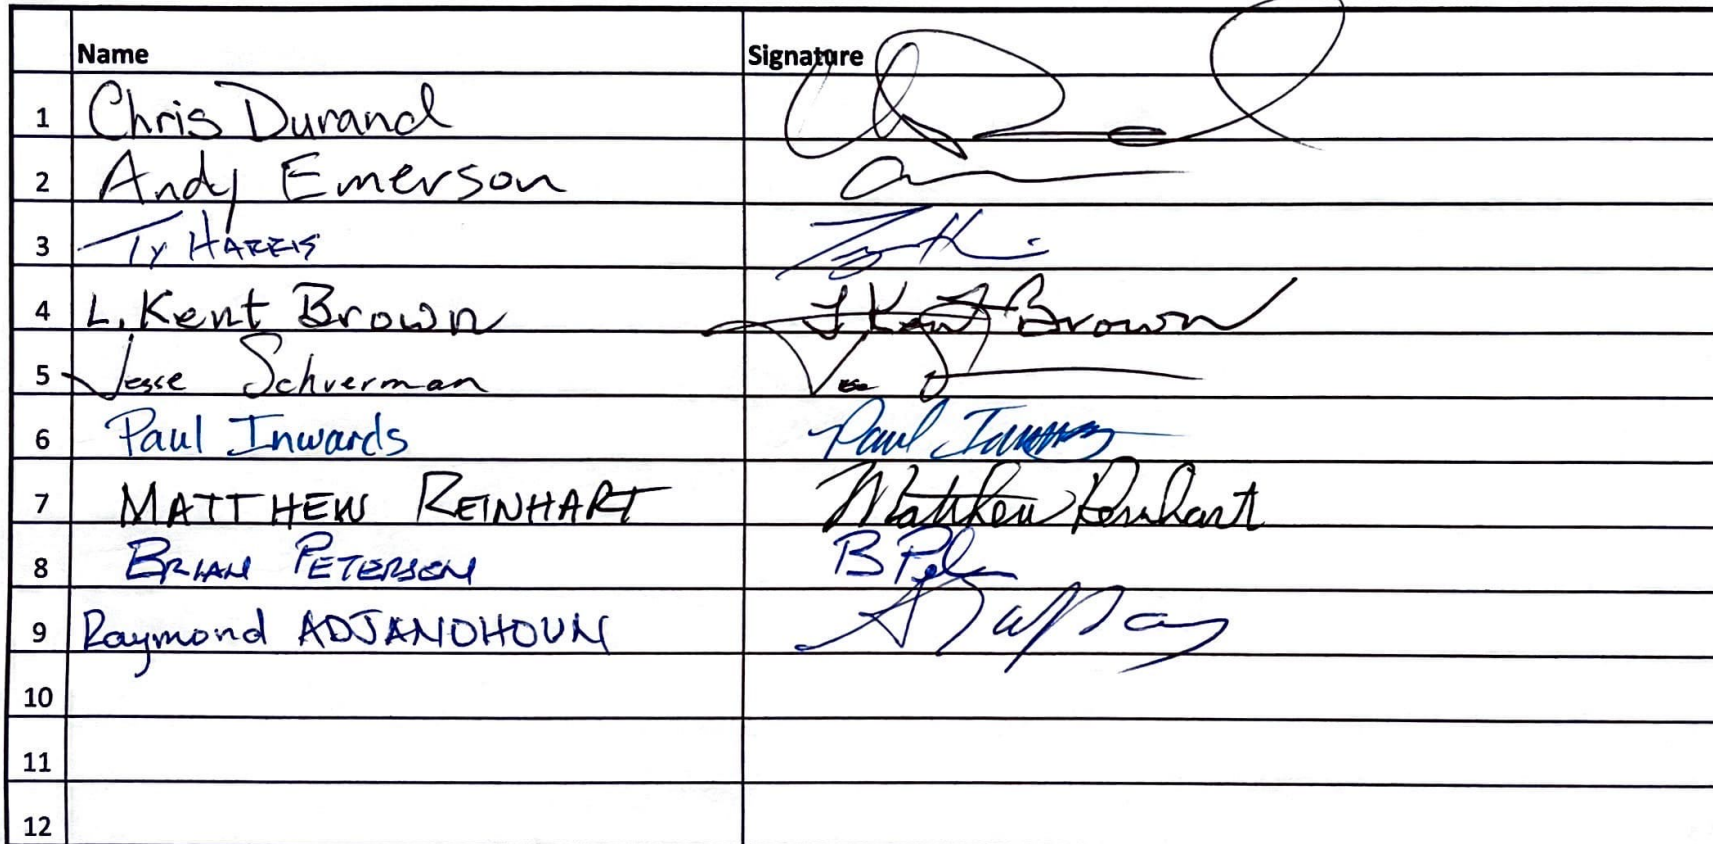 Name Signature
1 Chris Durand
2 Andy Emerson
3 Ty HARRIS
4 L. Kent Brown L Kent Brown
5 Jesse Schuerman
6 Paul Inwards Paul
7 MATTHEW REINHART Matthew Reinhart
8 BRIAN PETERSEN B
9 Raymond ADJANOHOUN
10
11
12